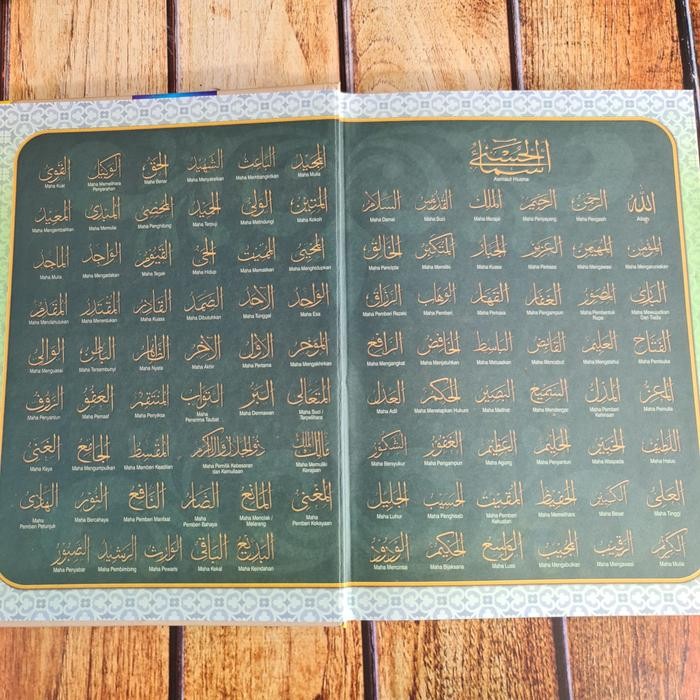 أسماء الحسنى
Asmaul Husna
الله الرحمن الرحيم الملك القدوس السلام
Allah Maha Pengasih Maha Penyayang Maha Merajai Maha Suci Maha Damai
المؤمن المهيمن العزيز الجبار المتكبر الخالق
Maha Mengamankan Maha Mengawasi Maha Perkasa Maha Kuasa Maha Memiliki Maha Pencipta
البارئ المصور الغفار القهار الوهاب الرزاق
Maha Mewujudkan Dari Tiada Maha Pembentuk Rupa Maha Pengampun Maha Perkasa Maha Pemberi Maha Pemberi Rezeki
الفتاح العليم القابض الباسط الخافض الرافع
Maha Pembuka Maha Mengetahui Maha Mencabut Maha Meluaskan Maha Menjatuhkan Maha Mengangkat
المعز المذل السميع البصير الحكم العدل
Maha Pemulia Maha Pemberi Kehinaan Maha Mendengar Maha Melihat Maha Menetapkan Hukum Maha Adil
اللطيف الخبير الحليم العظيم الغفور الشكور
Maha Halus Maha Waspada Maha Penyantun Maha Agung Maha Pengampun Maha Bersyukur
العلي الكبير الحفيظ المقيت الحسيب الجليل
Maha Tinggi Maha Besar Maha Memelihara Maha Pemberi Kekuatan Maha Penghisab Maha Luhur
الكريم الرقيب المجيب الواسع الحكيم الودود
Maha Mulia Maha Mengawasi Maha Mengabulkan Maha Luas Maha Bijaksana Maha Mencintai
المجيد الباعث الشهيد الحق الوكيل القوي
Maha Mulia Maha Membangkitkan Maha Menyaksikan Maha Benar Maha Memelihara Penyerahan Maha Kuat
المتين الولي الحميد المحصي المبدئ المعيد
Maha Kokoh Maha Melindungi Maha Terpuji Maha Penghitung Maha Memulai Maha Mengembalikan
المحيي المميت الحي القيوم الواجد الماجد
Maha Menghidupkan Maha Mematikan Maha Hidup Maha Tegak Maha Mengadakan Maha Mulia
الواحد الأحد الصمد القادر المقتدر المقدم
Maha Esa Maha Tunggal Maha Dibutuhkan Maha Kuasa Maha Menentukan Maha Mendahulukan
المؤخر الأول الآخر الظاهر الباطن الوالي
Maha Mengakhirkan Maha Pertama Maha Akhir Maha Nyata Maha Tersembunyi Maha Menguasai
المتعالي البر التواب المنتقم العفو الرؤوف
Maha Suci / Terpelihara Maha Dermawan Maha Penerima Taubat Maha Penyiksa Maha Pemaaf Maha Penyantun
مالك الملك ذو الجلال والإكرام المقسط الجامع الغني
Maha Memiliki Kerajaan Maha Pemilik Kebesaran dan Kemuliaan Maha Memberi Keadilan Maha Mengumpulkan Maha Kaya
المغني المانع الضار النافع النور الهادي
Maha Pemberi Kekayaan Maha Menolak / Melarang Maha Pemberi Bahaya Maha Pemberi Manfaat Maha Bercahaya Maha Pemberi Petunjuk
البديع الباقي الوارث الرشيد الصبور
Maha Keindahan Maha Kekal Maha Pewaris Maha Pembimbing Maha Penyabar